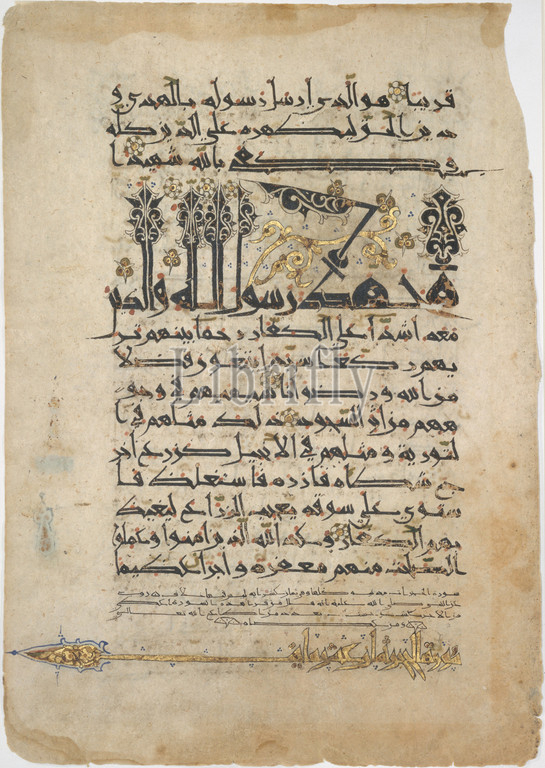 قريبا هو الذي ارسل رسوله بالهدى و
دين الحق ليظهره على الدين كله
وكفى بالله شهيدا
محمد رسول الله والذين
معه اشدا على الكفار رحما بينهم تر
يهم ركعا سجدا يبتغون فضلا
من الله ورضوانا سيماهم في وجو
ههم من اثر السجود ذلك مثلهم في ا
لتورية ومثلهم في الانجيل كزرع اخر
ج شطاه فازره فاستغلظ فا
ستوى على سوقه يعجب الزراع ليغيظ
بهم الكفار وعد الله الذين امنوا وعملوا
الصلحت منهم مغفرة واجرا عظيما
سورة الحجرات
Librrfly